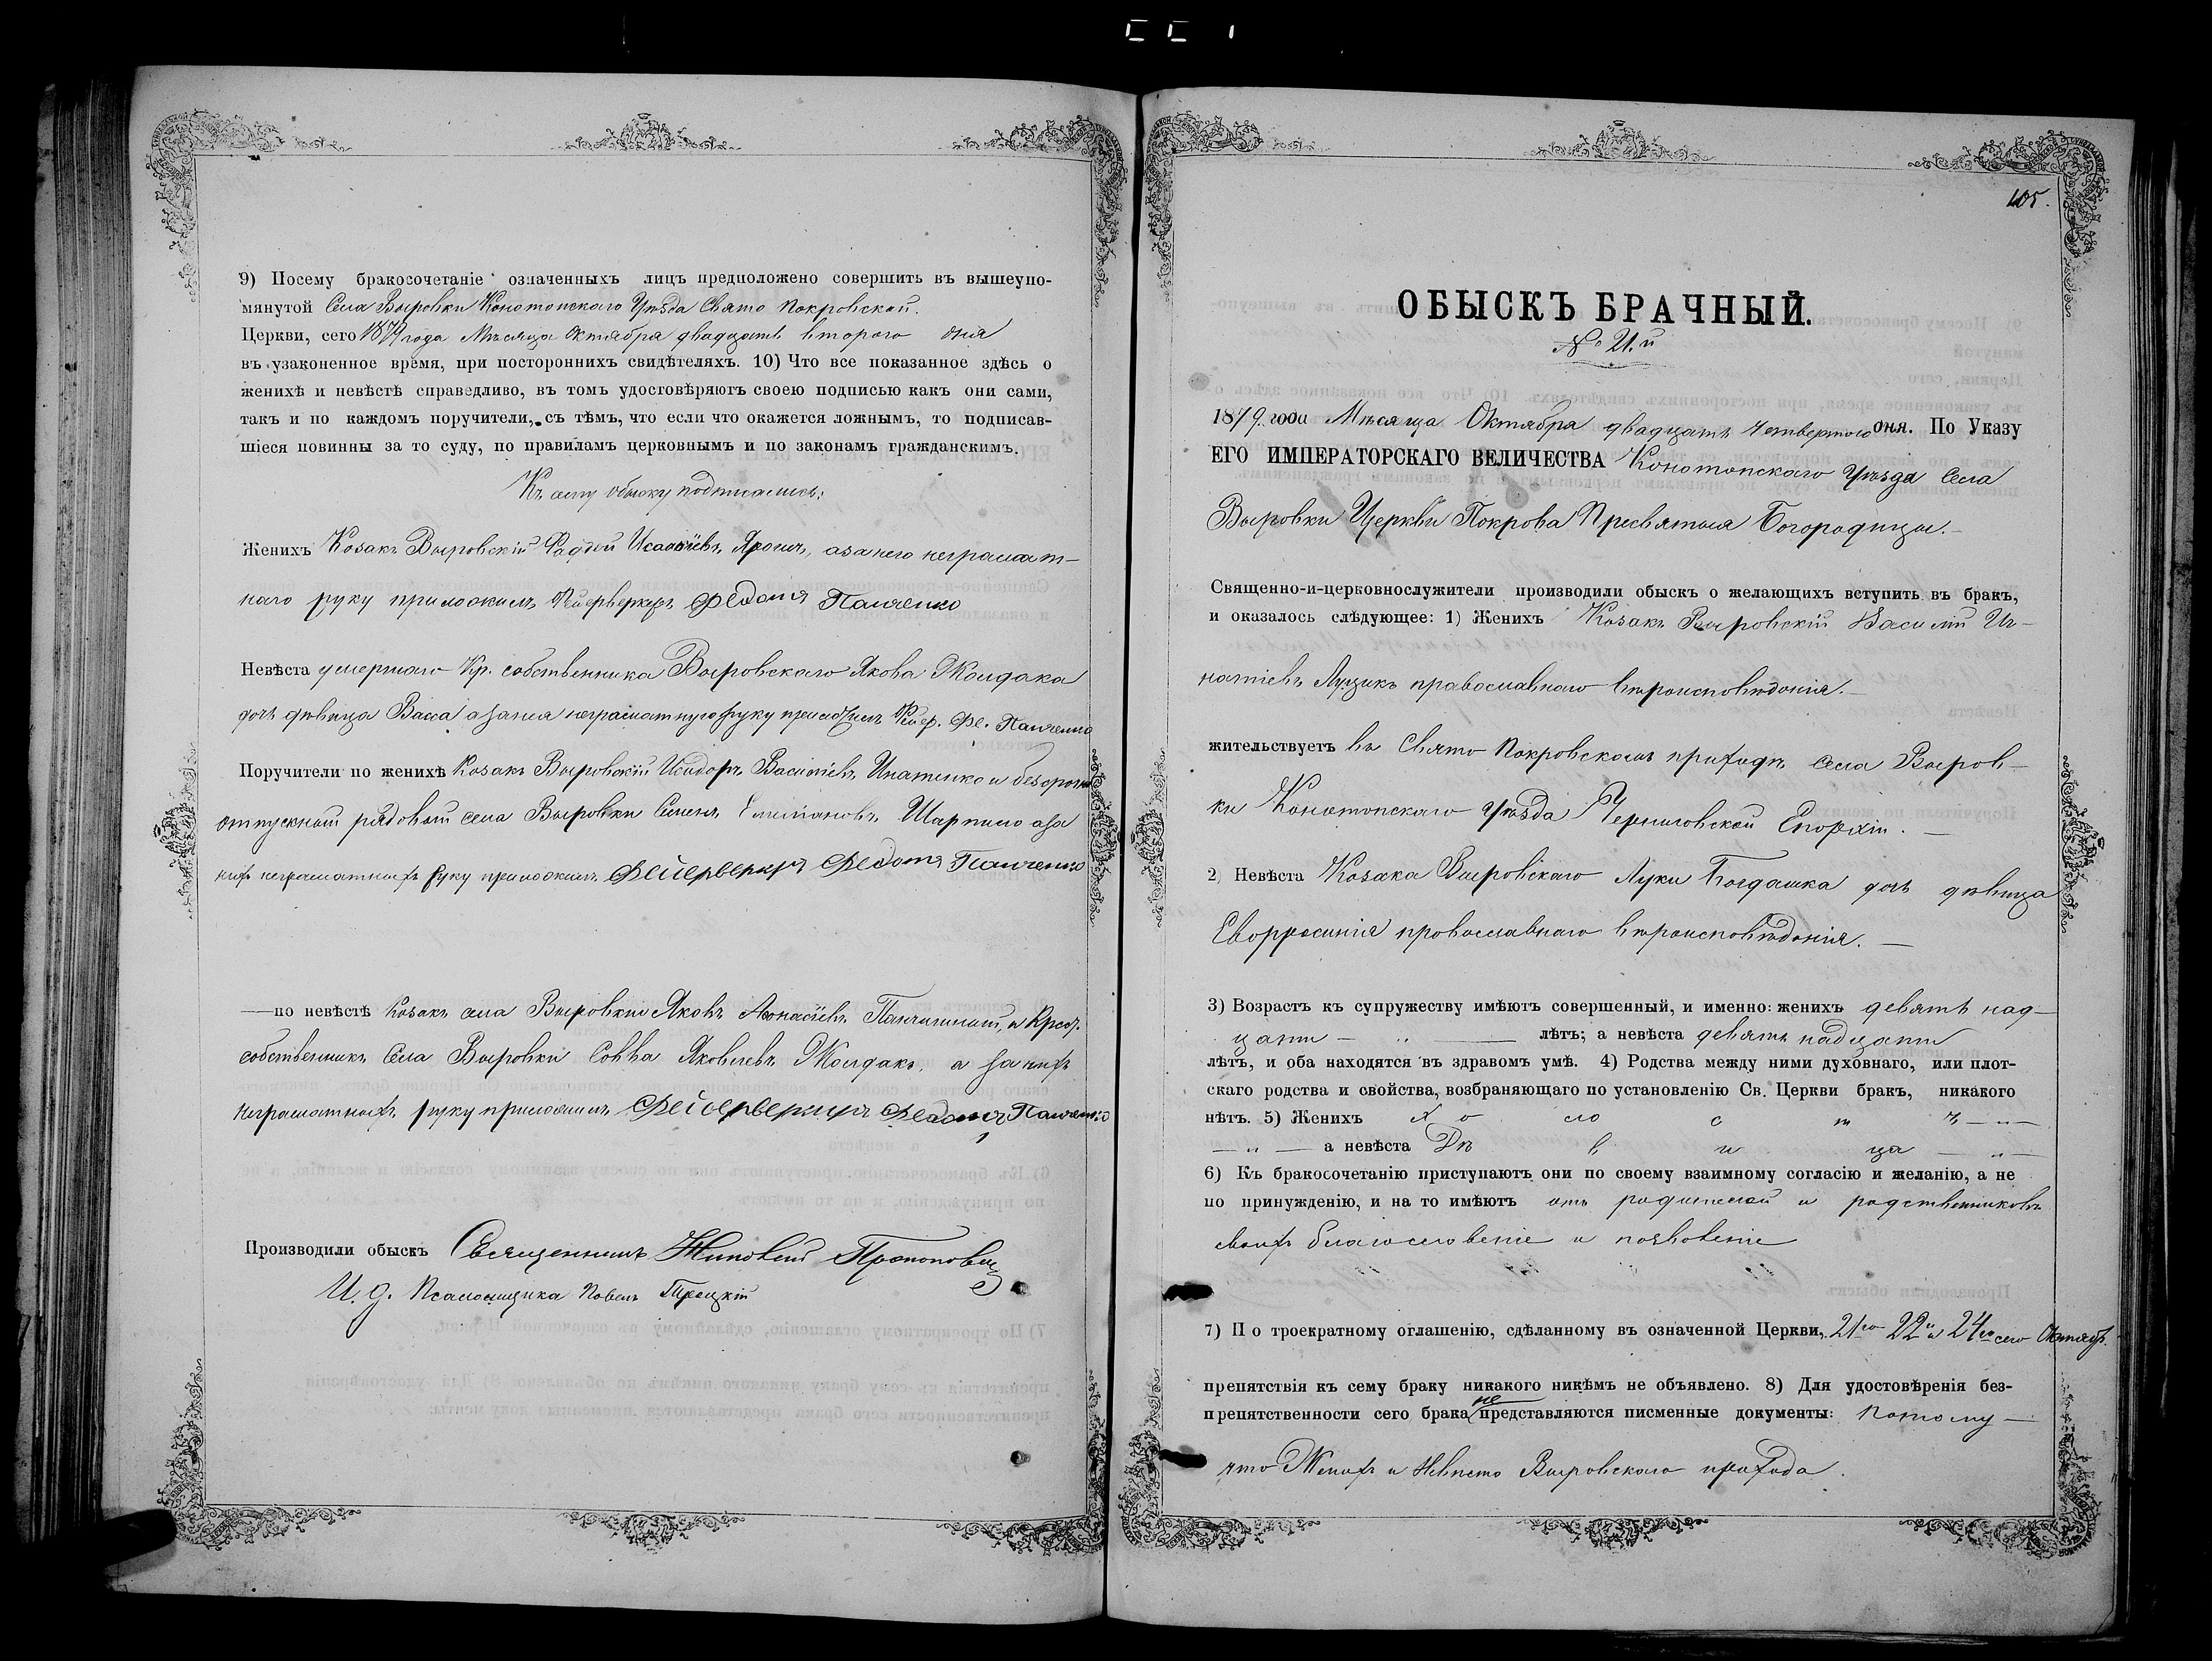 9) Посему бракосочетаніе означенныхъ лицъ предположено совершить въ вышеупо-
мянутой Села Выровки Конотопскаго Уѣзда Свято Покровской.
Церкви, сего 1879 года Мѣсяца Октября двадцать второго дня
въ узаконенное время, при постороннихъ свидѣтеляхъ. 10) Что все показанное здѣсь о
женихѣ и невѣстѣ справедливо, въ томъ удостовѣряютъ своею подписью какъ они сами,
такъ и по каждомъ поручители, съ тѣмъ, что если что окажется ложнымъ, то подписав-
шіеся повинны за то суду, по правиламъ церковнымъ и по законамъ гражданскимъ.
Къ сему обыску подписались:
Женихъ Козакъ Выровскій Фаддей а за него неграмат-
наго руку приложилъ Фейерверкеръ Федотъ Панченко
Невѣста умершаго Кр. собственника Выровскаго Якова Жолдака
дочь дѣвица Васса а за нея неграматную руку приложилъ Фейер. Фе. Панченко
Поручители по женихѣ Козакъ Выровскій Исидоръ Василіевъ Ипатенко и безсрочно
отпускный рядовый села Выровки Семенъ Шарпило а за
нихъ неграматныхъ руку приложилъ Фейерверкиръ Федотъ Панченко
—по невѣстѣ Козакъ села Выровки Яковъ Афонасіевъ и Крест.
собственникъ Села Выровки Савва Яковлевъ Жолдакъ, а за нихъ
неграматныхъ руку приложилъ Фейерверкиръ Федотъ Панченко
Производили обыскъ Священникъ Прокопович
И. д. Псаломщика Павелъ Троцкій
105.
ОБЫСКЪ БРАЧНЫЙ.
№ 21.й
1879 года Мѣсяца Октября двадцать четвертого дня. По Указу
ЕГО ИМПЕРАТОРСКАГО ВЕЛИЧЕСТВА Конотопскаго Уѣзда Села
Выровки Церкви Покрова Пресвятыя Богородицы.—
Священно-и-церковнослужители производили обыскъ о желающихъ вступить въ бракъ,
и оказалось слѣдующее: 1) Женихъ Козакъ Выровскій Василій Иг-
натіевъ Луцикъ православнаго вѣроисповѣданія.—
жительствуетъ въ Свято Покровскомъ приходѣ села Выров-
ки Конотопскаго Уѣзда Черниговской Епархіи. —
2) Невѣста Козака Выровскаго Луки Богдашка дочь дѣвица
Евфросинія православнаго вѣроисповѣданія. —
3) Возрастъ къ супружеству имѣютъ совершенный, и именно: женихъ девять над-
цати — „ — лѣтъ; а невѣста девять надцати
лѣтъ, и оба находятся въ здравомъ умѣ. 4) Родства между ними духовнаго, или плот-
скаго родства и свойства, возбраняющаго по установленію Св. Церкви бракъ, никакого
нѣтъ. 5) Женихъ Х о ло с т ъ — „ —
— „ — а невѣста Дѣ в и ца — „ —
6) Къ бракосочетанію приступаютъ они по своему взаимному согласію и желанію, а не
по принужденію, и на то имѣютъ отъ родителей и родственниковъ
своихъ благословеніе и позволеніе
7) По троекратному оглашенію, сдѣланному въ означенной Церкви, 21го 22 и 24го сего Октябр.
препятствія къ сему браку никакого никѣмъ не объявлено. 8) Для удостовѣренія без-
препятственности сего брака не представляются писменные документы: потому —
что Женихъ и Невѣста Выровскаго прихода.